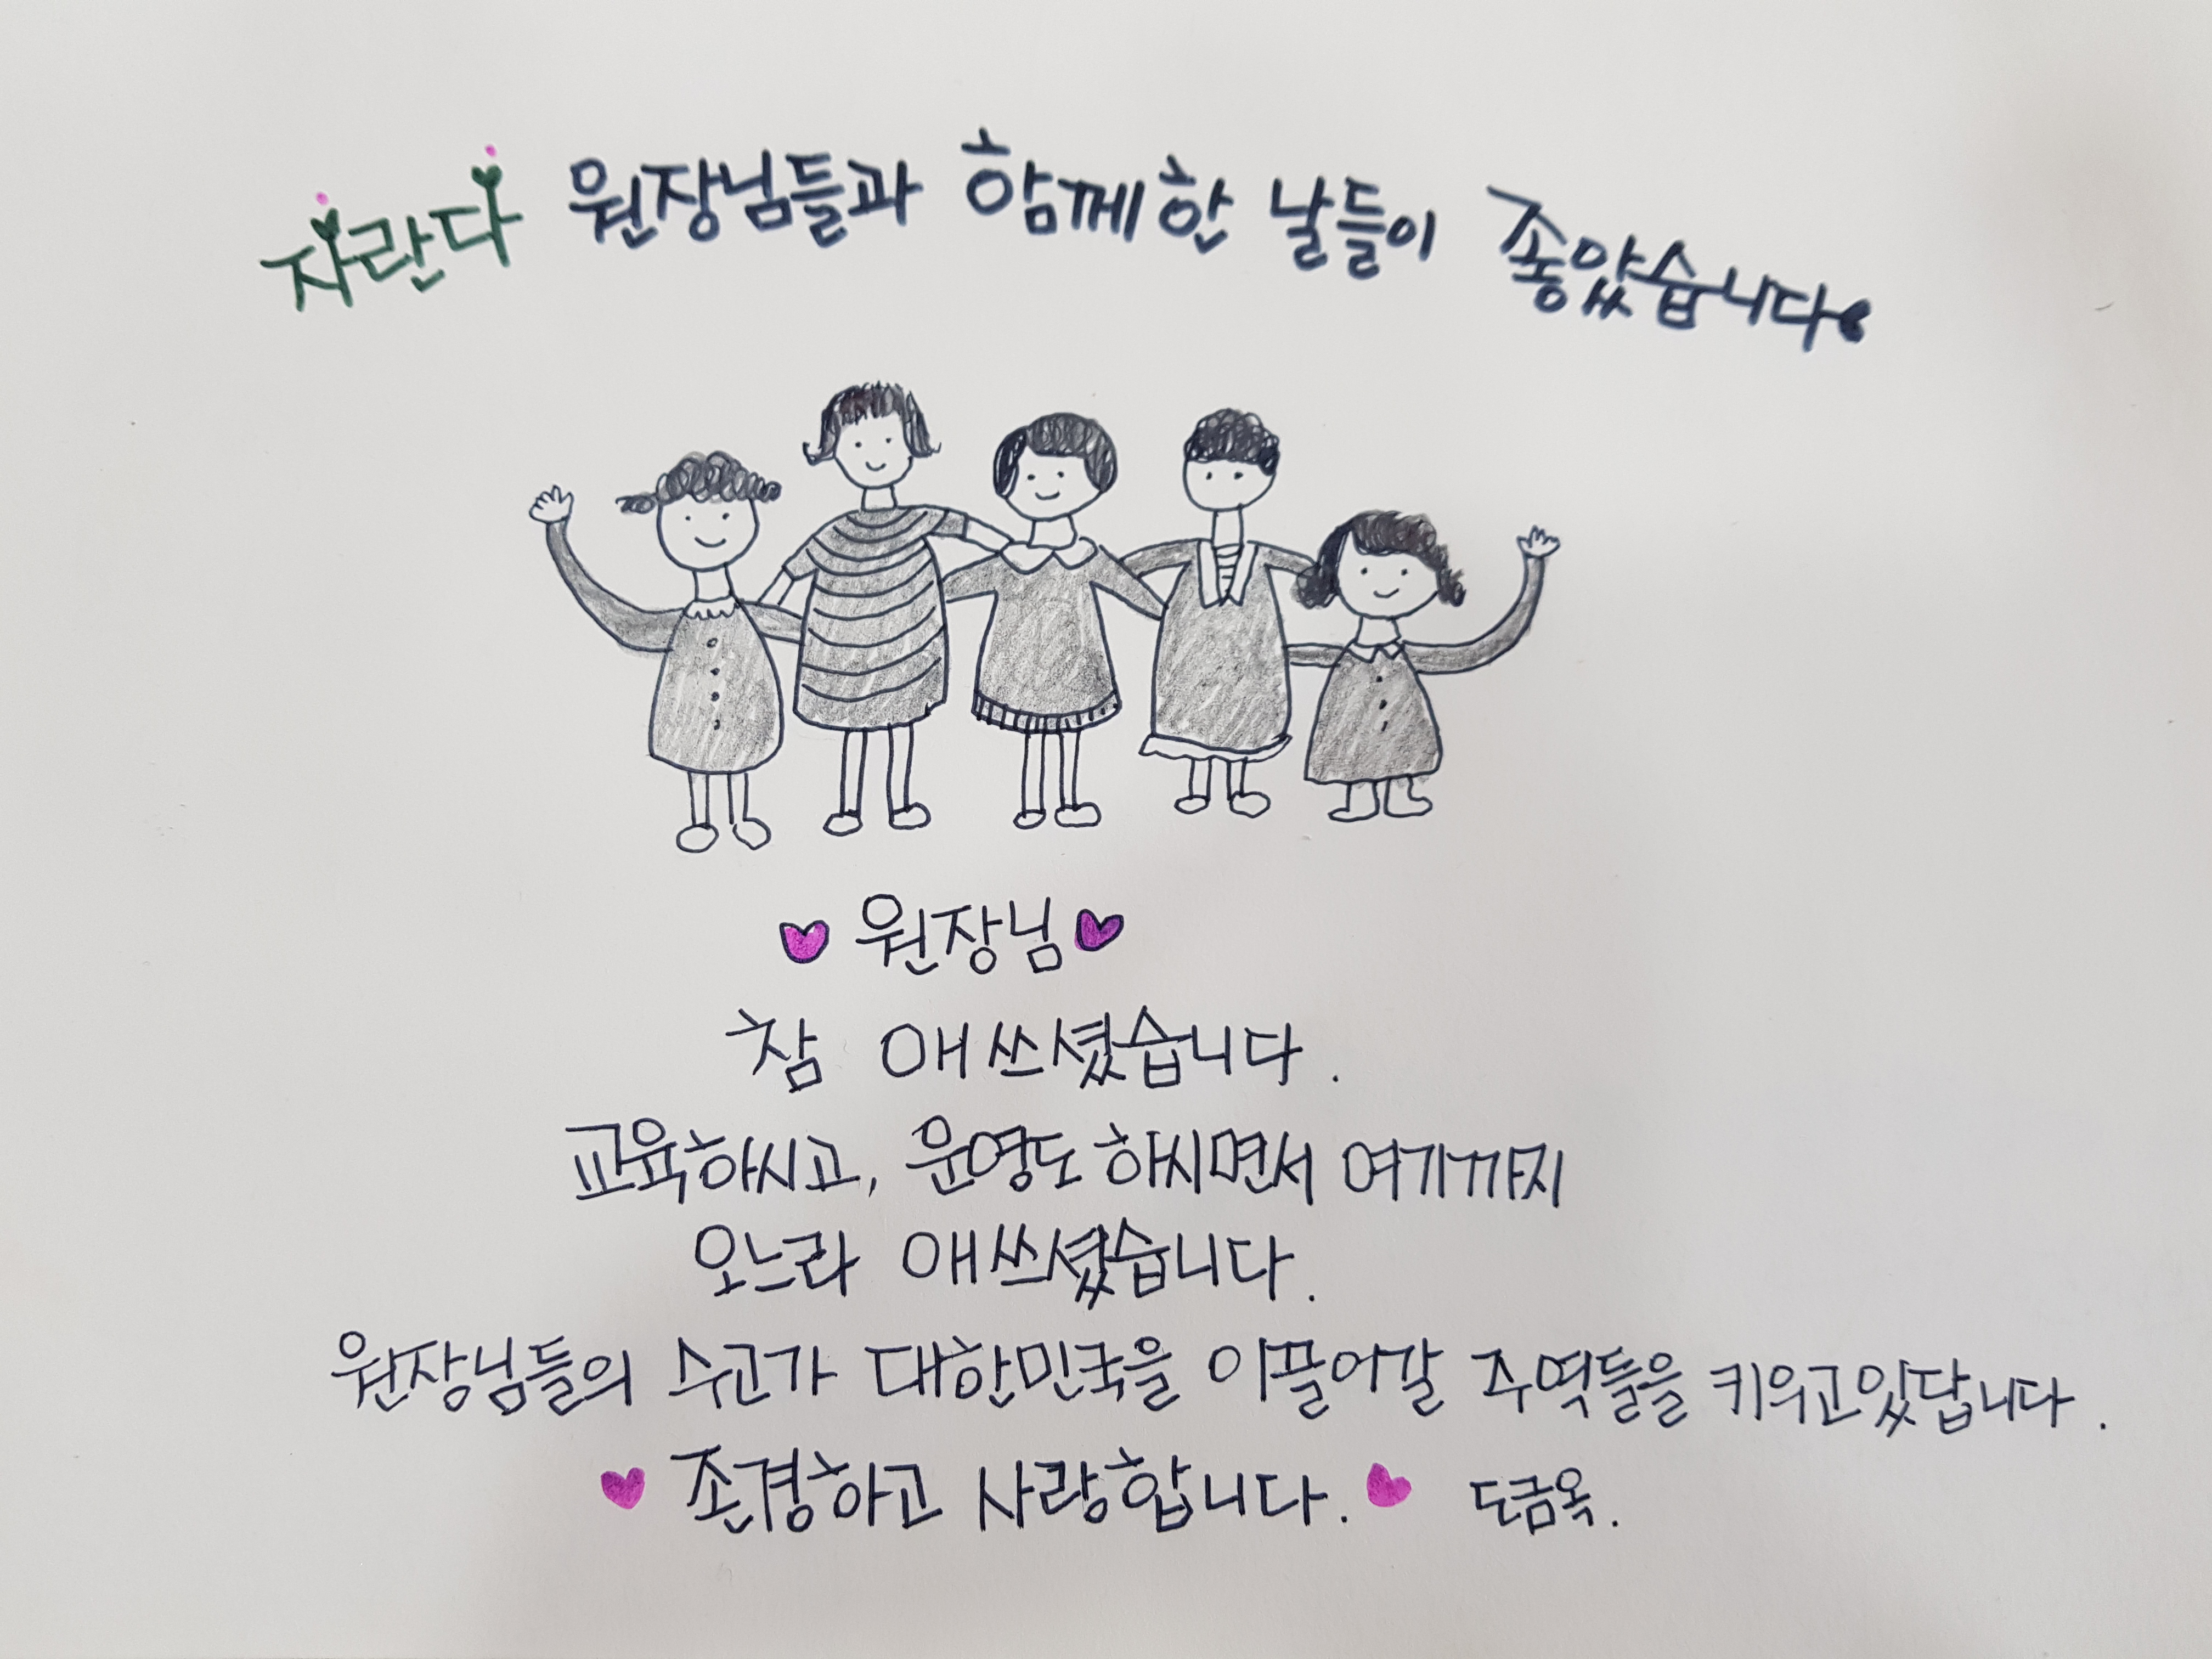 자란다 원장님들과 함께한 날들이 좋았습니다
원장님
참 애쓰셨습니다.
교육하시고, 운영도 하시면서 여기까지
오느라 애쓰셨습니다.
원장님들의 수고가 대한민국을 이끌어갈 주역들을 키우고있답니다.
존경하고 사랑합니다. 도금옥.